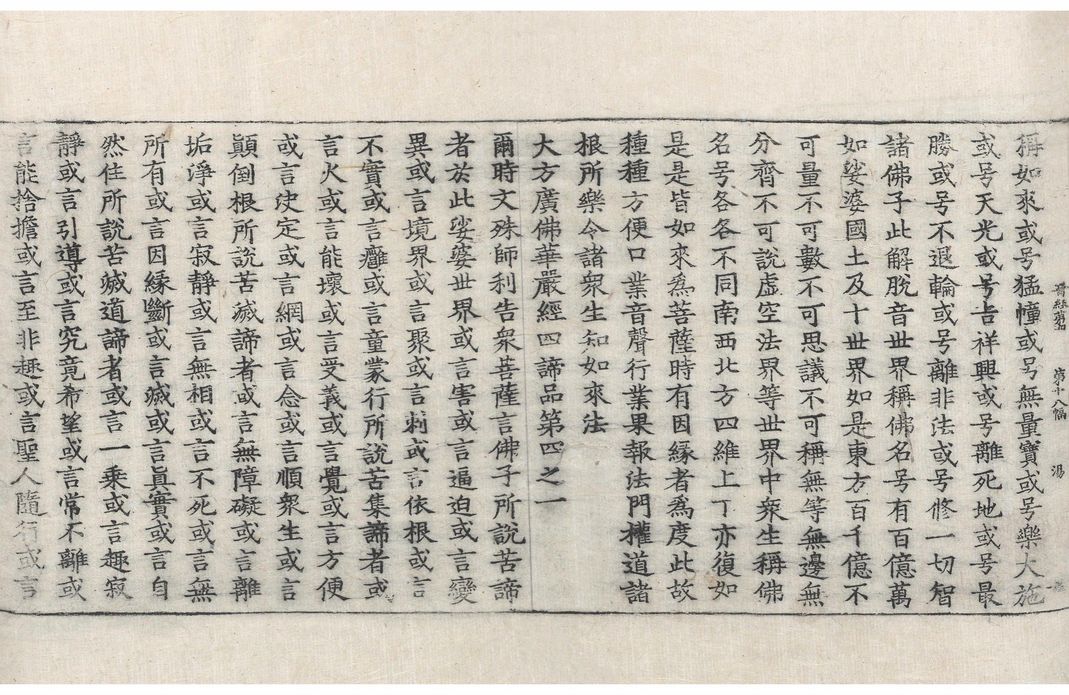 第十八幅 湯
稱如來或号猛幢或号無量寶或号樂大施
或号天光或号吉祥興或号離死地或号最
勝或号不退輪或号離非法或号修一切智
諸佛子此解脫音世界稱佛名号有百億萬
如娑婆國土及十世界如是東方百千億不
可量不可數不可思議不可稱無等無邊無
分齊不可說虛空法界等世界中衆生稱佛
名号各各不同南西北方四維上丁亦復如
是是皆如來爲菩薩時有因緣者爲度此故
種種方便口業音聲行業果報法門權道諸
根所樂令諸衆生知如來法
大方廣佛華嚴經四諦品第四之一
爾時文殊師利告衆菩薩言佛子所說苦諦
者於此娑婆世界或言害或言逼迫或言變
異或言境界或言聚或言刺或言依根或言
不實或言癰或言童蒙行所說苦集諦者或
言火或言能壞或言受義或言覺或言方便
或言決定或言網或言念或言順衆生或言
顛倒根所說苦滅諦者或言無障礙或言離
垢淨或言寂靜或言無相或言不死或言無
所有或言因緣斷或言滅或言眞實或言自
然住所說苦滅道諦者或言一乘或言趣寂
靜或言引導或言究竟希望或言常不離或
言能捨擔或言至非趣或言聖人隨行或言